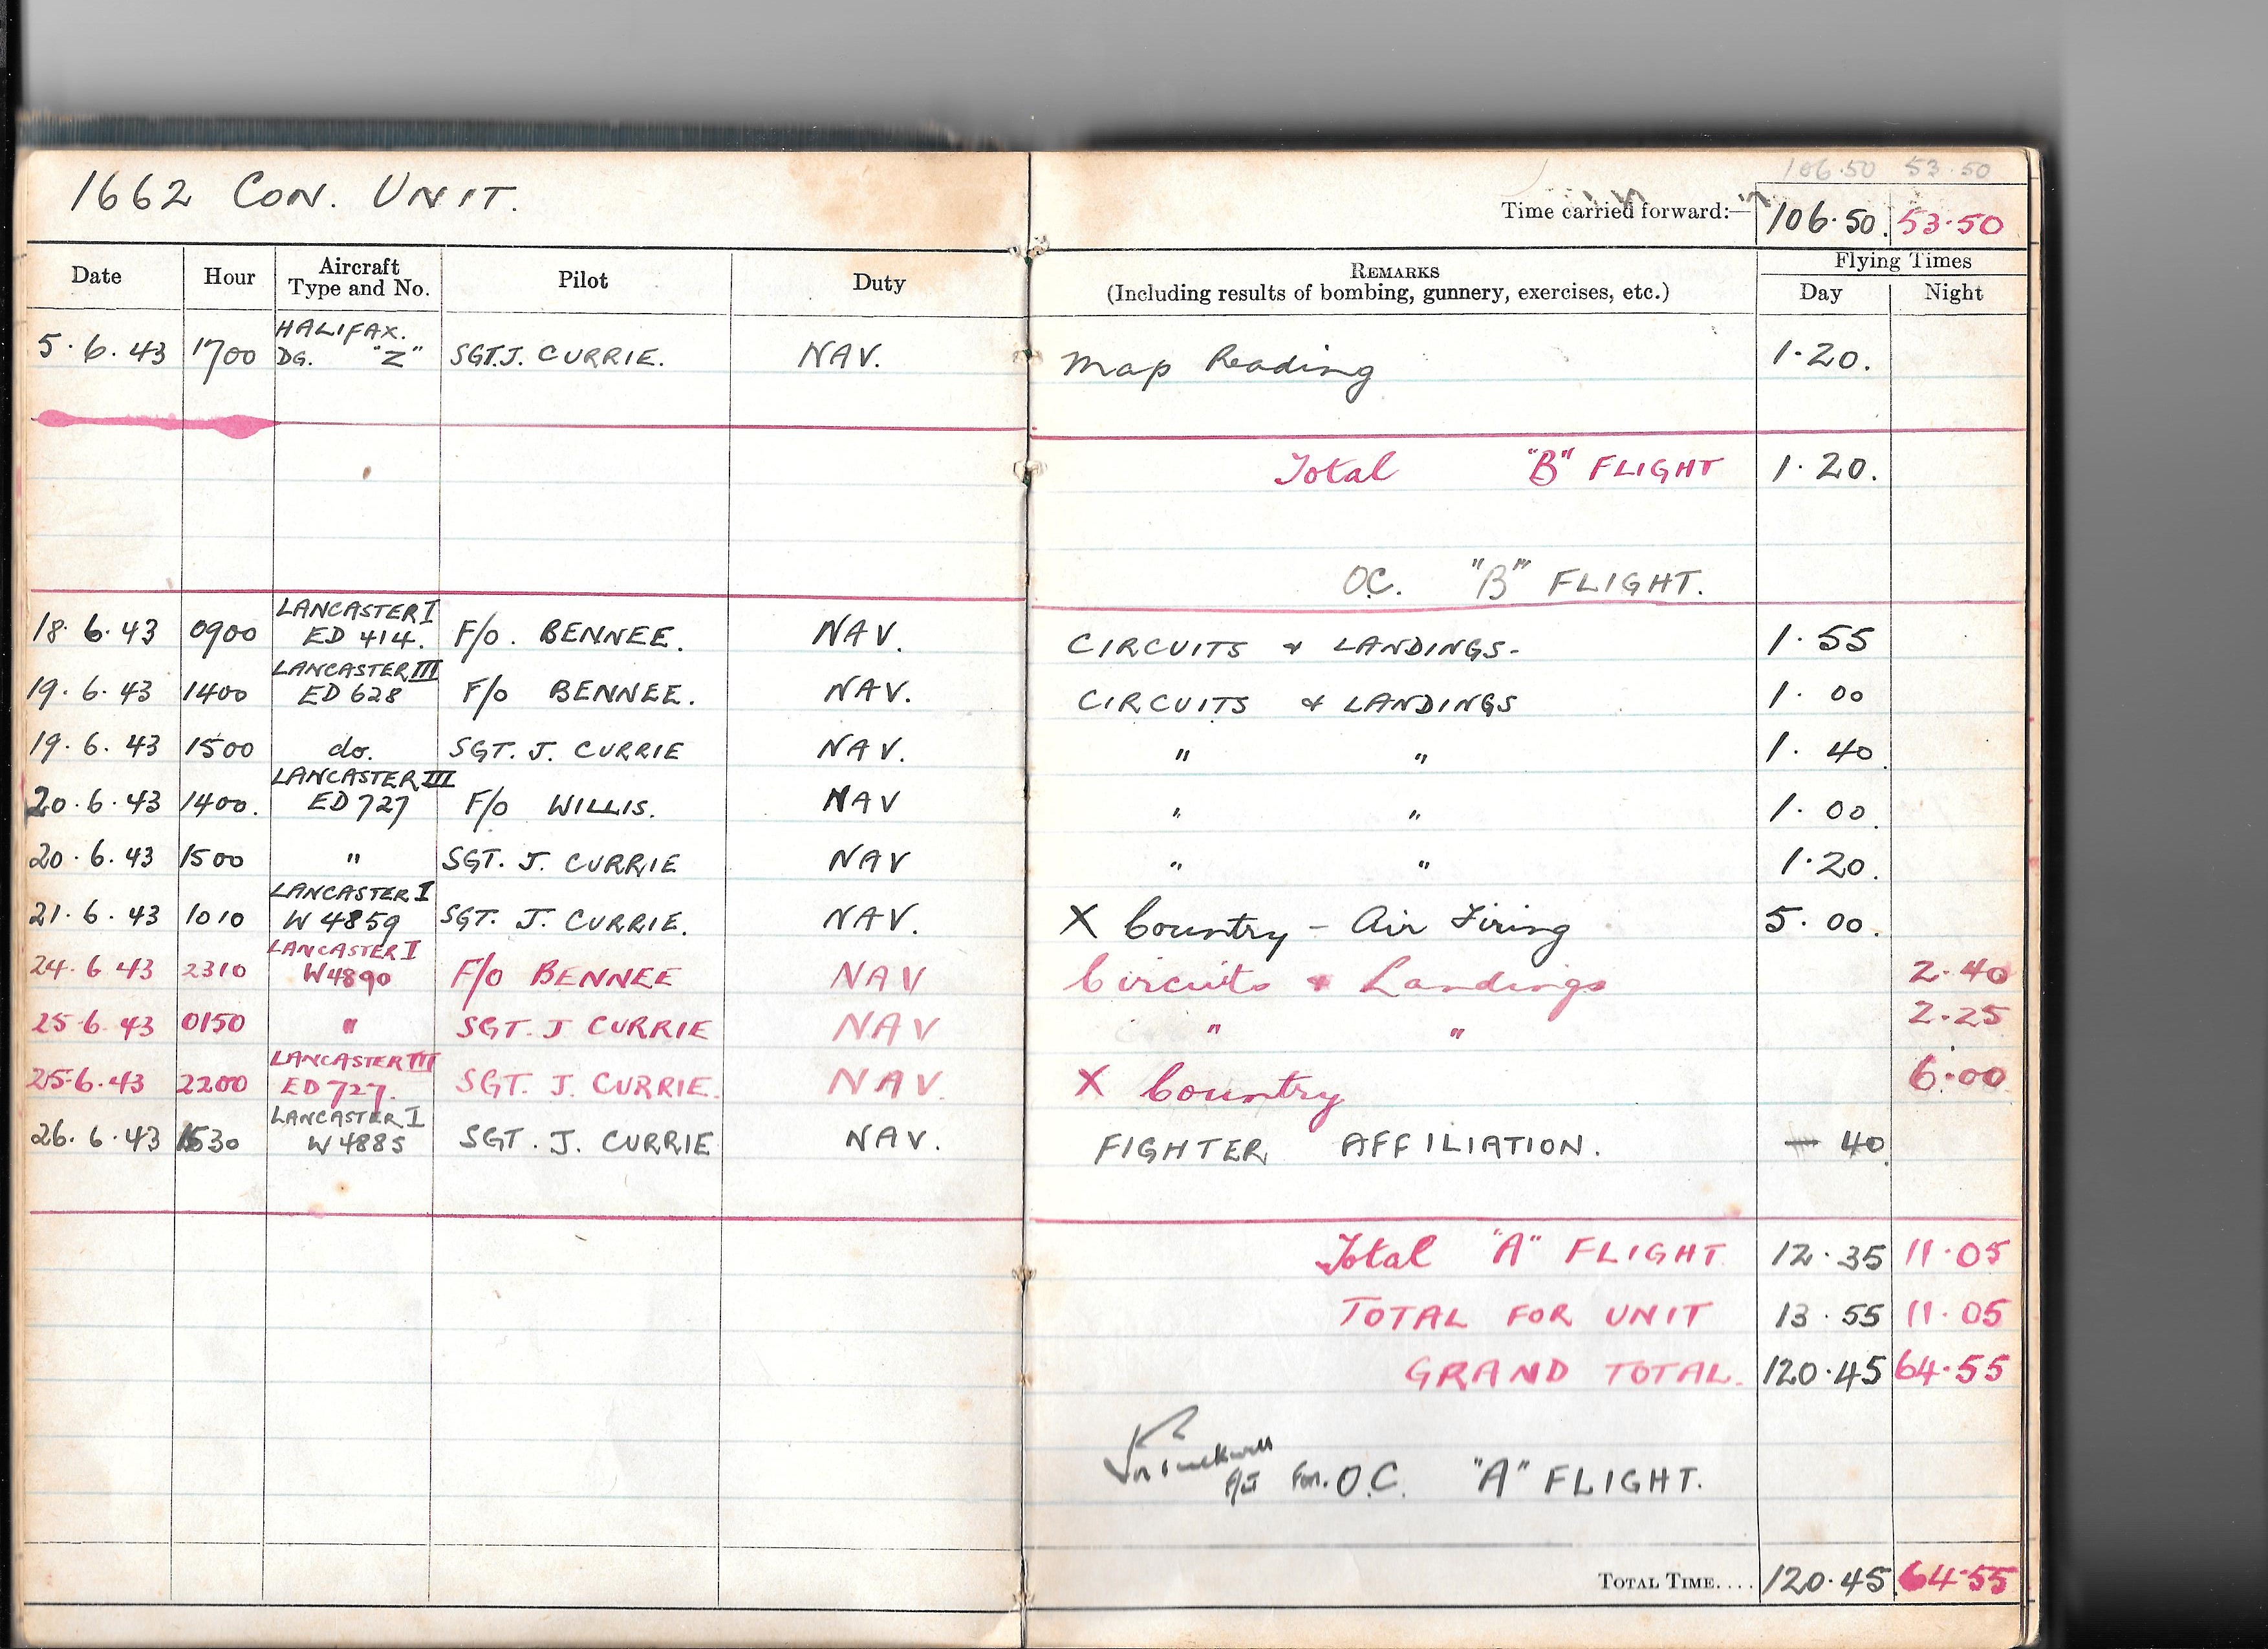 106.50 53.50
1662 CON. UNIT.
Time carried forward:— 106.50. 53.50
Date Hour Aircraft Type and No. Pilot Duty REMARKS (Including results of bombing, gunnery, exercises, etc.) Flying Times Day Night
HALIFAX.
5.6.43 1700 DG. "Z" SGT.J. CURRIE. NAV. Map Reading 1.20.
Total "B" FLIGHT 1.20.
O.C. "B" FLIGHT.
LANCASTER I
18.6.43 0900 ED 414. F/O. BENNEE. NAV. CIRCUITS & LANDINGS- 1.55
LANCASTER III
19.6.43 1400 ED 628 F/O BENNEE. NAV. CIRCUITS & LANDINGS 1.00
19.6.43 1500 do. SGT. J. CURRIE NAV. " " 1.40.
LANCASTER III
20.6.43 1400. ED 727 F/O WILLIS. NAV " " 1.00.
20.6.43 1500 " SGT. J. CURRIE NAV " " 1.20.
LANCASTER I
21.6.43 1010 W 4859 SGT. J. CURRIE. NAV. X Country - Air Firing 5.00.
LANCASTER I
24.6 43 2310 W4890 F/O BENNEE NAV Circuits & Landings 2.40
25.6.43 0150 " SGT. J CURRIE NAV " " 2.25
LANCASTER III
25.6.43 2200 ED 727. SGT. J. CURRIE. NAV. X Country 6.00
LANCASTER I
26.6.43 1530 W 4885 SGT. J. CURRIE NAV. FIGHTER AFFILIATION. — 40.
Total "A" FLIGHT 12.35 11.05
TOTAL FOR UNIT 13.55 11.05
GRAND TOTAL. 120.45 64.55
F/LT for. O.C. "A" FLIGHT.
TOTAL TIME.... 120.45 64.55